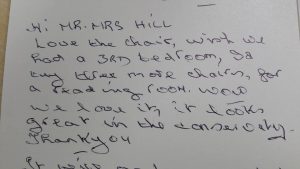 Hi MR.MRS HILL
Love the chair, wish we
had a 3RD bedroom, Id
buy three more chairs, for
a reading room. wow
we love it, it looks
great in the conservatry.
Thankyou